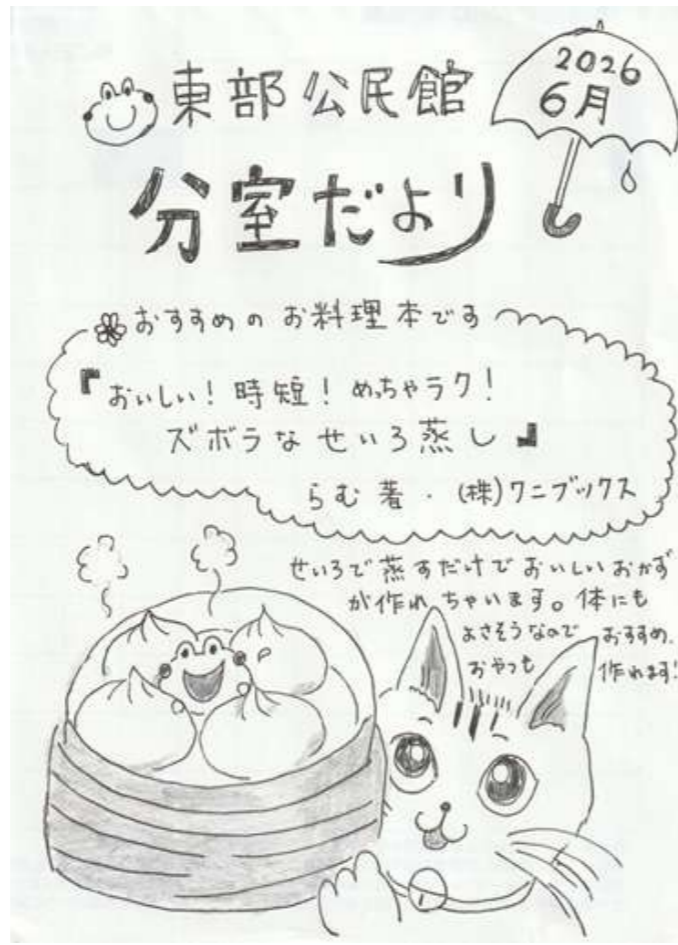 東部公民館
2026
6月
分室だより
おすすめのお料理本です
『おいしい!時短!めっちゃラク!
ズボラなせいろ蒸し』
らむ著.(株)ワニブックス
せいろで蒸すだけでおいしいおかず
が作れちゃいます。体にも
よさそうなのでおすすめ.
おやつも作れます!